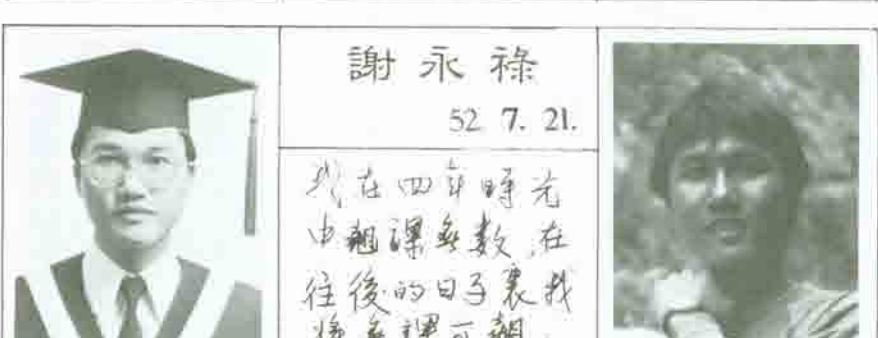 謝永祿
52. 7. 21.
我在四年時光
中翹課無數,在
往後的日子裏我
將無課可翹。